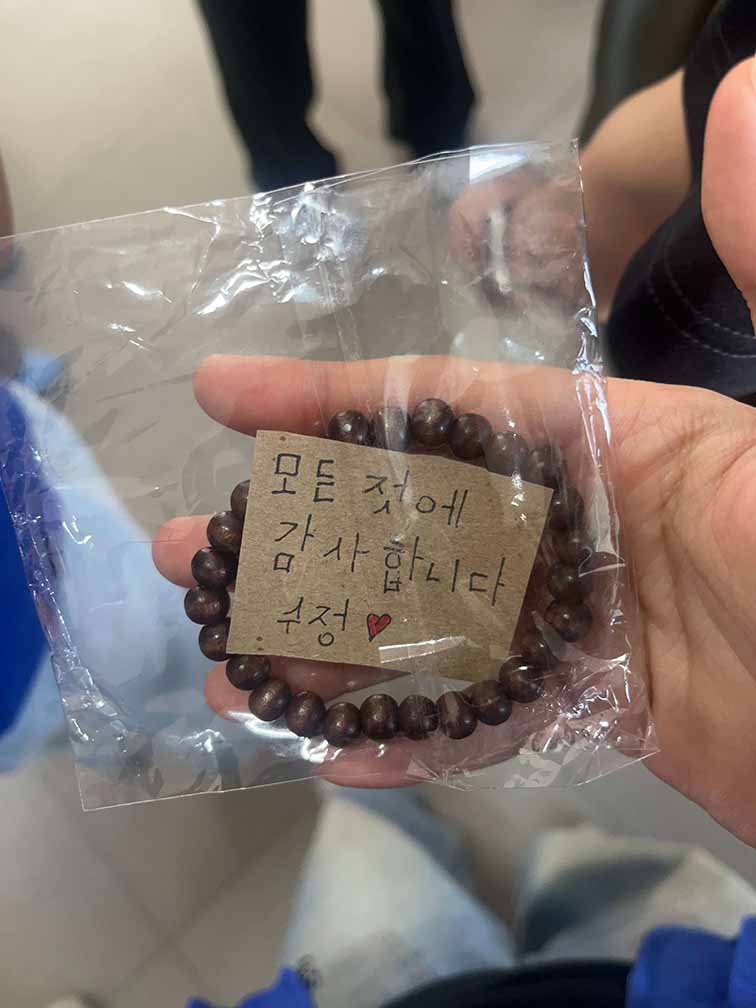 모든 젓에
감사합니다
수정